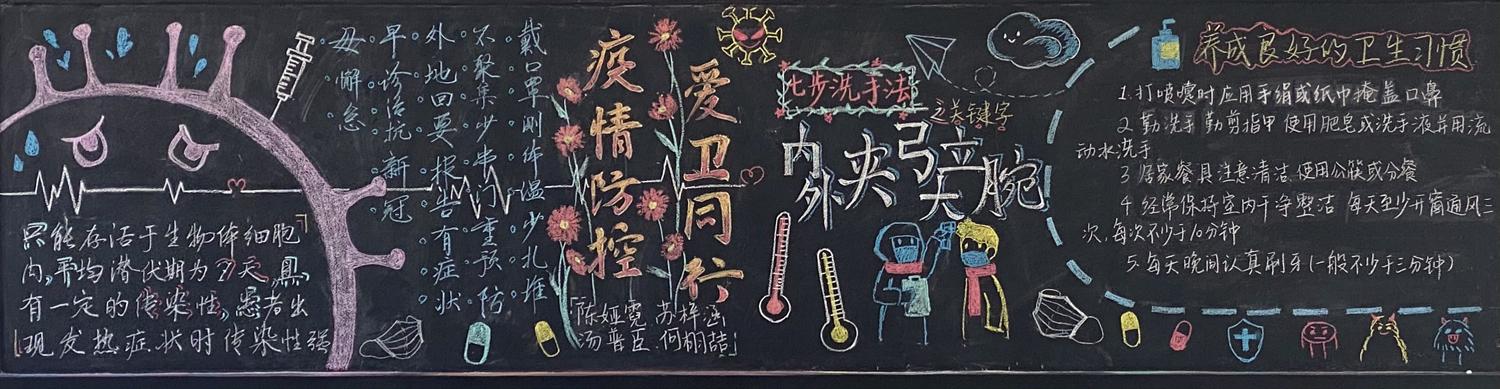 只能存活于生物体细胞
内,平均潜伏期为7天,具
有一定的传染性,患者出
现发热症状时传染性强
戴口罩测体温少扎堆
不聚集少串门重预防
外地回要报告有症状
早诊治抗新冠
毋懈怠
疫情防控
爱卫同行
陈娅霓 苏梓涵
汤普臣 何栩喆
七步洗手法
之关键字
内外夹弓大立腕
养成良好的卫生习惯
1.打喷嚏时应用手绢或纸巾掩盖口鼻
2 勤洗手 勤剪指甲 使用肥皂或洗手液并用流
动水洗手
3 居家餐具注意清洁 使用公筷或分餐
4 经常保持室内干净整洁 每天至少开窗通风三
次,每次不少于10分钟
5 每天晚间认真刷牙(一般不少于三分钟)